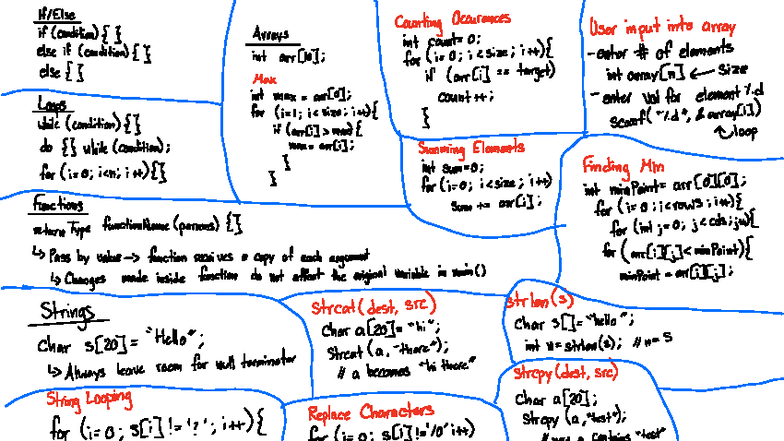 If/Else
if (condition) { }
else if (condition) { }
else { }
Loops
while (condition) { }
do { } while (condition);
for (i=0; i<n; i++) { }
Arrays
int arr[10];
Max
int max = arr[0];
for (i=1; i<size; i++){
if (arr[i] > max){
max = arr[i];
}
}
Counting Occurances
int count=0;
for (i=0; i<size; i++){
if (arr[i] == target)
count++;
}
Summing Elements
int sum=0;
for (i=0; i<size; i++)
sum += arr[i];
User input into array
-enter # of elements
int array[n] ← Size
-enter val for element %d
scanf("%d", &array[i])
loop
Finding Min
int minPoint= arr[0][0];
for (i=0; i<rows; i++){
for (int j=0; j<cols; j++){
for (arr[i][j]<minPoint){
minPoint=arr[i][j];
Functions
return Type functionName (params) { }
↳ Pass by value → function receives a copy of each argument
↳ Changes made inside function do not affect the original variable in main()
Strings
Char s[20] = "Hello";
↳ Always leave room for null terminator
Strcat(dest, src)
Char a[20]= "hi";
Strcat (a, "there");
// a becomes "hi there"
strlen(s)
Char s[]= "hello";
int n=strlen(s); // n=5
Strcpy(dest, src)
Char a[20];
Strcpy (a, "test");
String Looping
for (i=0; s[i] != '?'; i++){
Replace Characters
for (i=0; s[i]!='/0' i++)